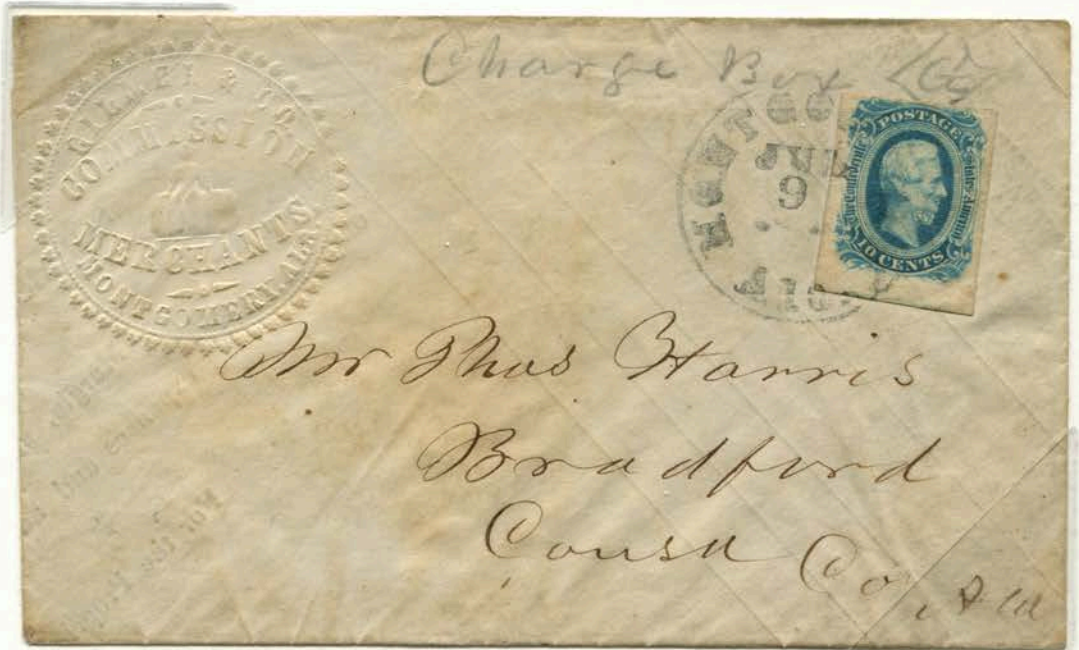 Charge Box
& CO.
COMMISSION
MERCHANTS
MONTGOMERY, ALA
MONTGO
JUL
9
POSTAGE
The Confederate States of America
10 CENTS
Mr Thos Harris
Bradford
Coosa Co, Ala